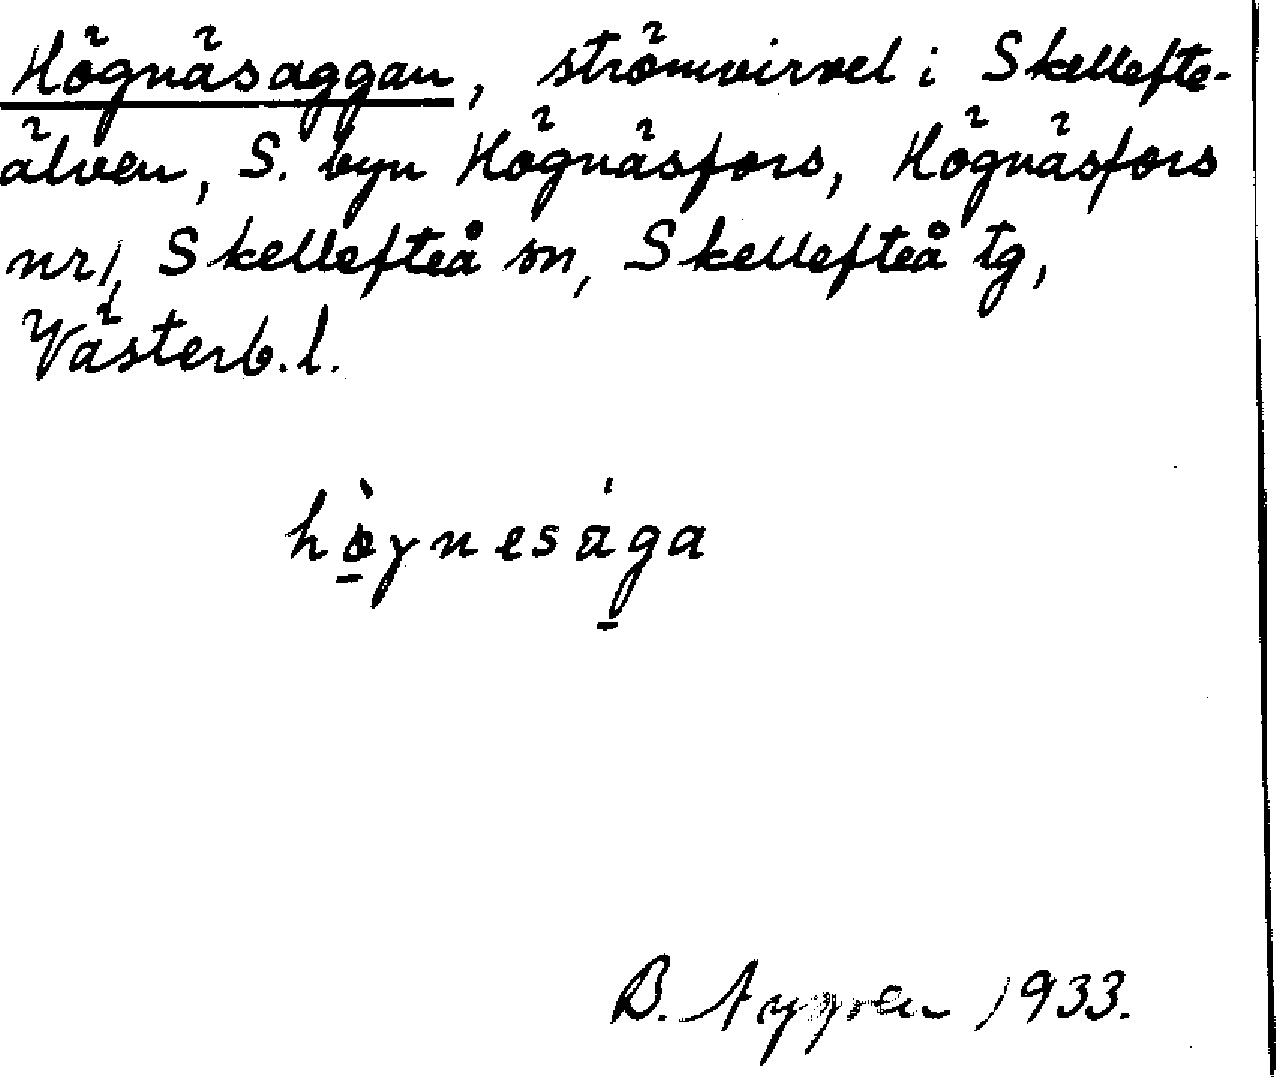 Högnäsaggan, strömvirvel i Skellefte-
älven, S. byn Högnäsfors, Högnäsfors
nr 1, Skellefteå sn, Skellefteå tg,
Västerb. l.
hö̀gnesága
B. 1933.